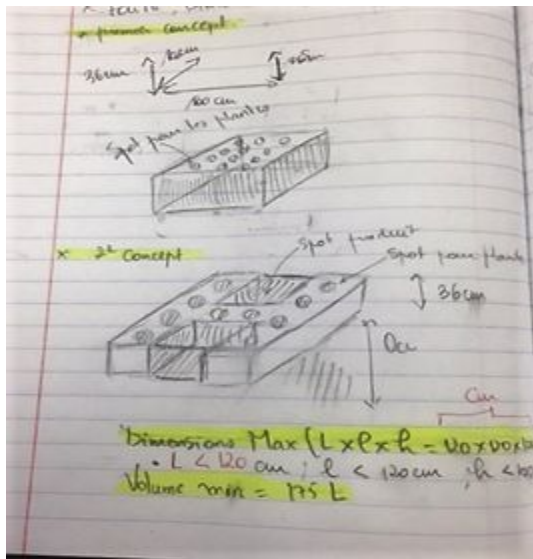 × premier concept
36cm
100 cm
Spot pour les plantes
× 2e Concept
Spot produit
Spot pour plante
36cm
Cm
Dimensions Max (L x l x h = 120x120x
. L < 120 cm ; l < 120cm ; h <
Volume min = 175 L